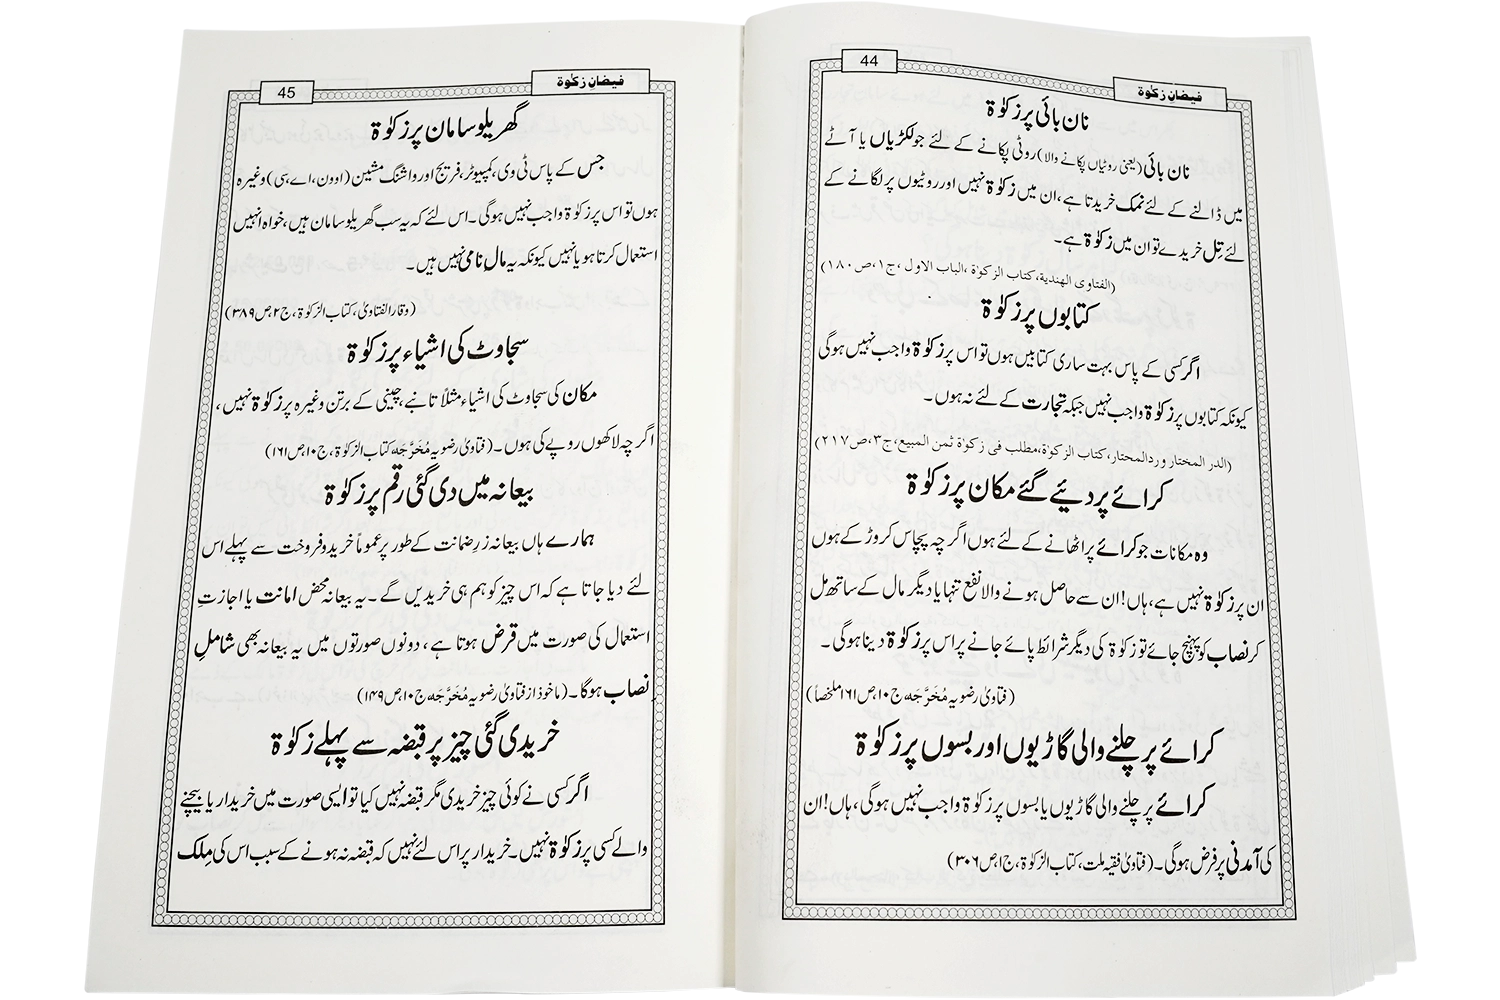 44
فیضانِ زکوٰۃ
نان بائی پر زکوٰۃ
نان بائی (یعنی روٹیاں پکانے والا) روٹی پکانے کے لئے جو لکڑیاں یا آٹے
میں ڈالنے کے لئے نمک خریدتا ہے، ان میں زکوٰۃ نہیں اور روٹیوں پر لگانے کے
لئے تِل خریدے تو ان میں زکوٰۃ ہے۔
(الفتاوی الهندیة، کتاب الزکوٰة، الباب الاول، ج۱، ص۱۸۰)
کتابوں پر زکوٰۃ
اگر کسی کے پاس بہت ساری کتابیں ہوں تو اس پر زکوٰۃ واجب نہیں ہوگی
کیونکہ کتابوں پر زکوٰۃ واجب نہیں جبکہ تجارت کے لئے نہ ہوں۔
(الدر المختار و ردالمحتار، کتاب الزکوٰة، مطلب فی زکوٰة ثمن المبیع، ج۳، ص۲۱۷)
کرائے پر دئیے گئے مکان پر زکوٰۃ
وہ مکانات جو کرائے پر اٹھانے کے لئے ہوں اگرچہ پچاس کروڑ کے ہوں
ان پر زکوٰۃ نہیں ہے، ہاں! ان سے حاصل ہونے والا نفع تنہا یا دیگر مال کے ساتھ مل
کر نصاب کو پہنچ جائے تو زکوٰۃ کی دیگر شرائط پائے جانے پر اس پر زکوٰۃ دینا ہوگی۔
(فتاویٰ رضویہ مُخَرَّجَه ج۱۰، ص۱۶۱ ملخصاً)
کرائے پر چلنے والی گاڑیوں اور بسوں پر زکوٰۃ
کرائے پر چلنے والی گاڑیوں یا بسوں پر زکوٰۃ واجب نہیں ہوگی، ہاں! ان
کی آمدنی پر فرض ہوگی۔ (فتاویٰ فقیہ ملت، کتاب الزکوٰۃ، ج۱، ص۳۰۶)
فیضانِ زکوٰۃ
45
گھریلو سامان پر زکوٰۃ
جس کے پاس ٹی وی، کمپیوٹر، فریج اور واشنگ مشین (اوون، اے، سی) وغیرہ
ہوں تو اس پر زکوٰۃ واجب نہیں ہوگی۔ اس لئے کہ یہ سب گھریلو سامان ہیں، خواہ انہیں
استعمال کرتا ہو یا نہیں کیونکہ یہ مالِ نامی نہیں ہیں۔
(وقار الفتاویٰ، کتاب الزکوٰۃ، ج۲، ص۳۸۹)
سجاوٹ کی اشیاء پر زکوٰۃ
مکان کی سجاوٹ کی اشیاء مثلاً تانبے، چینی کے برتن وغیرہ پر زکوٰۃ نہیں،
اگرچہ لاکھوں روپے کی ہوں۔ (فتاویٰ رضویہ مُخَرَّجَه کتاب الزکوٰۃ، ج۱۰، ص۱۶۱)
بیعانہ میں دی گئی رقم پر زکوٰۃ
ہمارے ہاں بیعانہ زرِ ضمانت کے طور پر عموماً خرید و فروخت سے پہلے اس
لئے دیا جاتا ہے کہ اس چیز کو ہم ہی خریدیں گے۔ یہ بیعانہ محض امانت یا اجازتِ
استعمال کی صورت میں قرض ہوتا ہے، دونوں صورتوں میں یہ بیعانہ بھی شاملِ
نصاب ہوگا۔ (ماخوذ از فتاویٰ رضویہ مُخَرَّجَه ج۱۰، ص۱۴۹)
خریدی گئی چیز پر قبضہ سے پہلے زکوٰۃ
اگر کسی نے کوئی چیز خریدی مگر قبضہ نہیں کیا تو ایسی صورت میں خریدار یا بیچنے
والے کسی پر زکوٰۃ نہیں۔ خریدار پر اس لئے نہیں کہ قبضہ نہ ہونے کے سبب اس کی مِلک